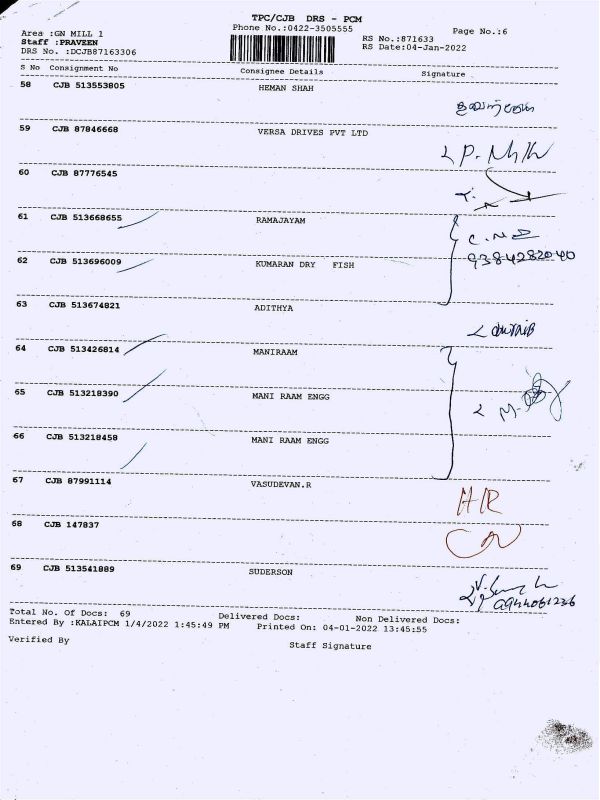 TPC/CJB DRS - PCM
Phone No.:0422-3505555
Page No.:6
Area :GN MILL 1
RS No.:871633
Staff :PRAVEEN
RS Date:04-Jan-2022
DRS No. :DCJB87163306
S No Consignment No Consignee Details Signature
58 CJB 513553805 HEMAN SHAH
59 CJB 87846668 VERSA DRIVES PVT LTD
60 CJB 87776545
61 CJB 513668655 RAMAJAYAM
62 CJB 513696009 KUMARAN DRY FISH
9384282040
63 CJB 513674821 ADITHYA
64 CJB 513426814 MANIRAAM
65 CJB 513218390 MANI RAAM ENGG
66 CJB 513218458 MANI RAAM ENGG
67 CJB 87991114 VASUDEVAN.R
68 CJB 147837
69 CJB 513541889 SUDERSON
9944061236
Total No. Of Docs: 69 Delivered Docs: Non Delivered Docs:
Entered By :KALAIPCM 1/4/2022 1:45:49 PM Printed On: 04-01-2022 13:45:55
Verified By Staff Signature